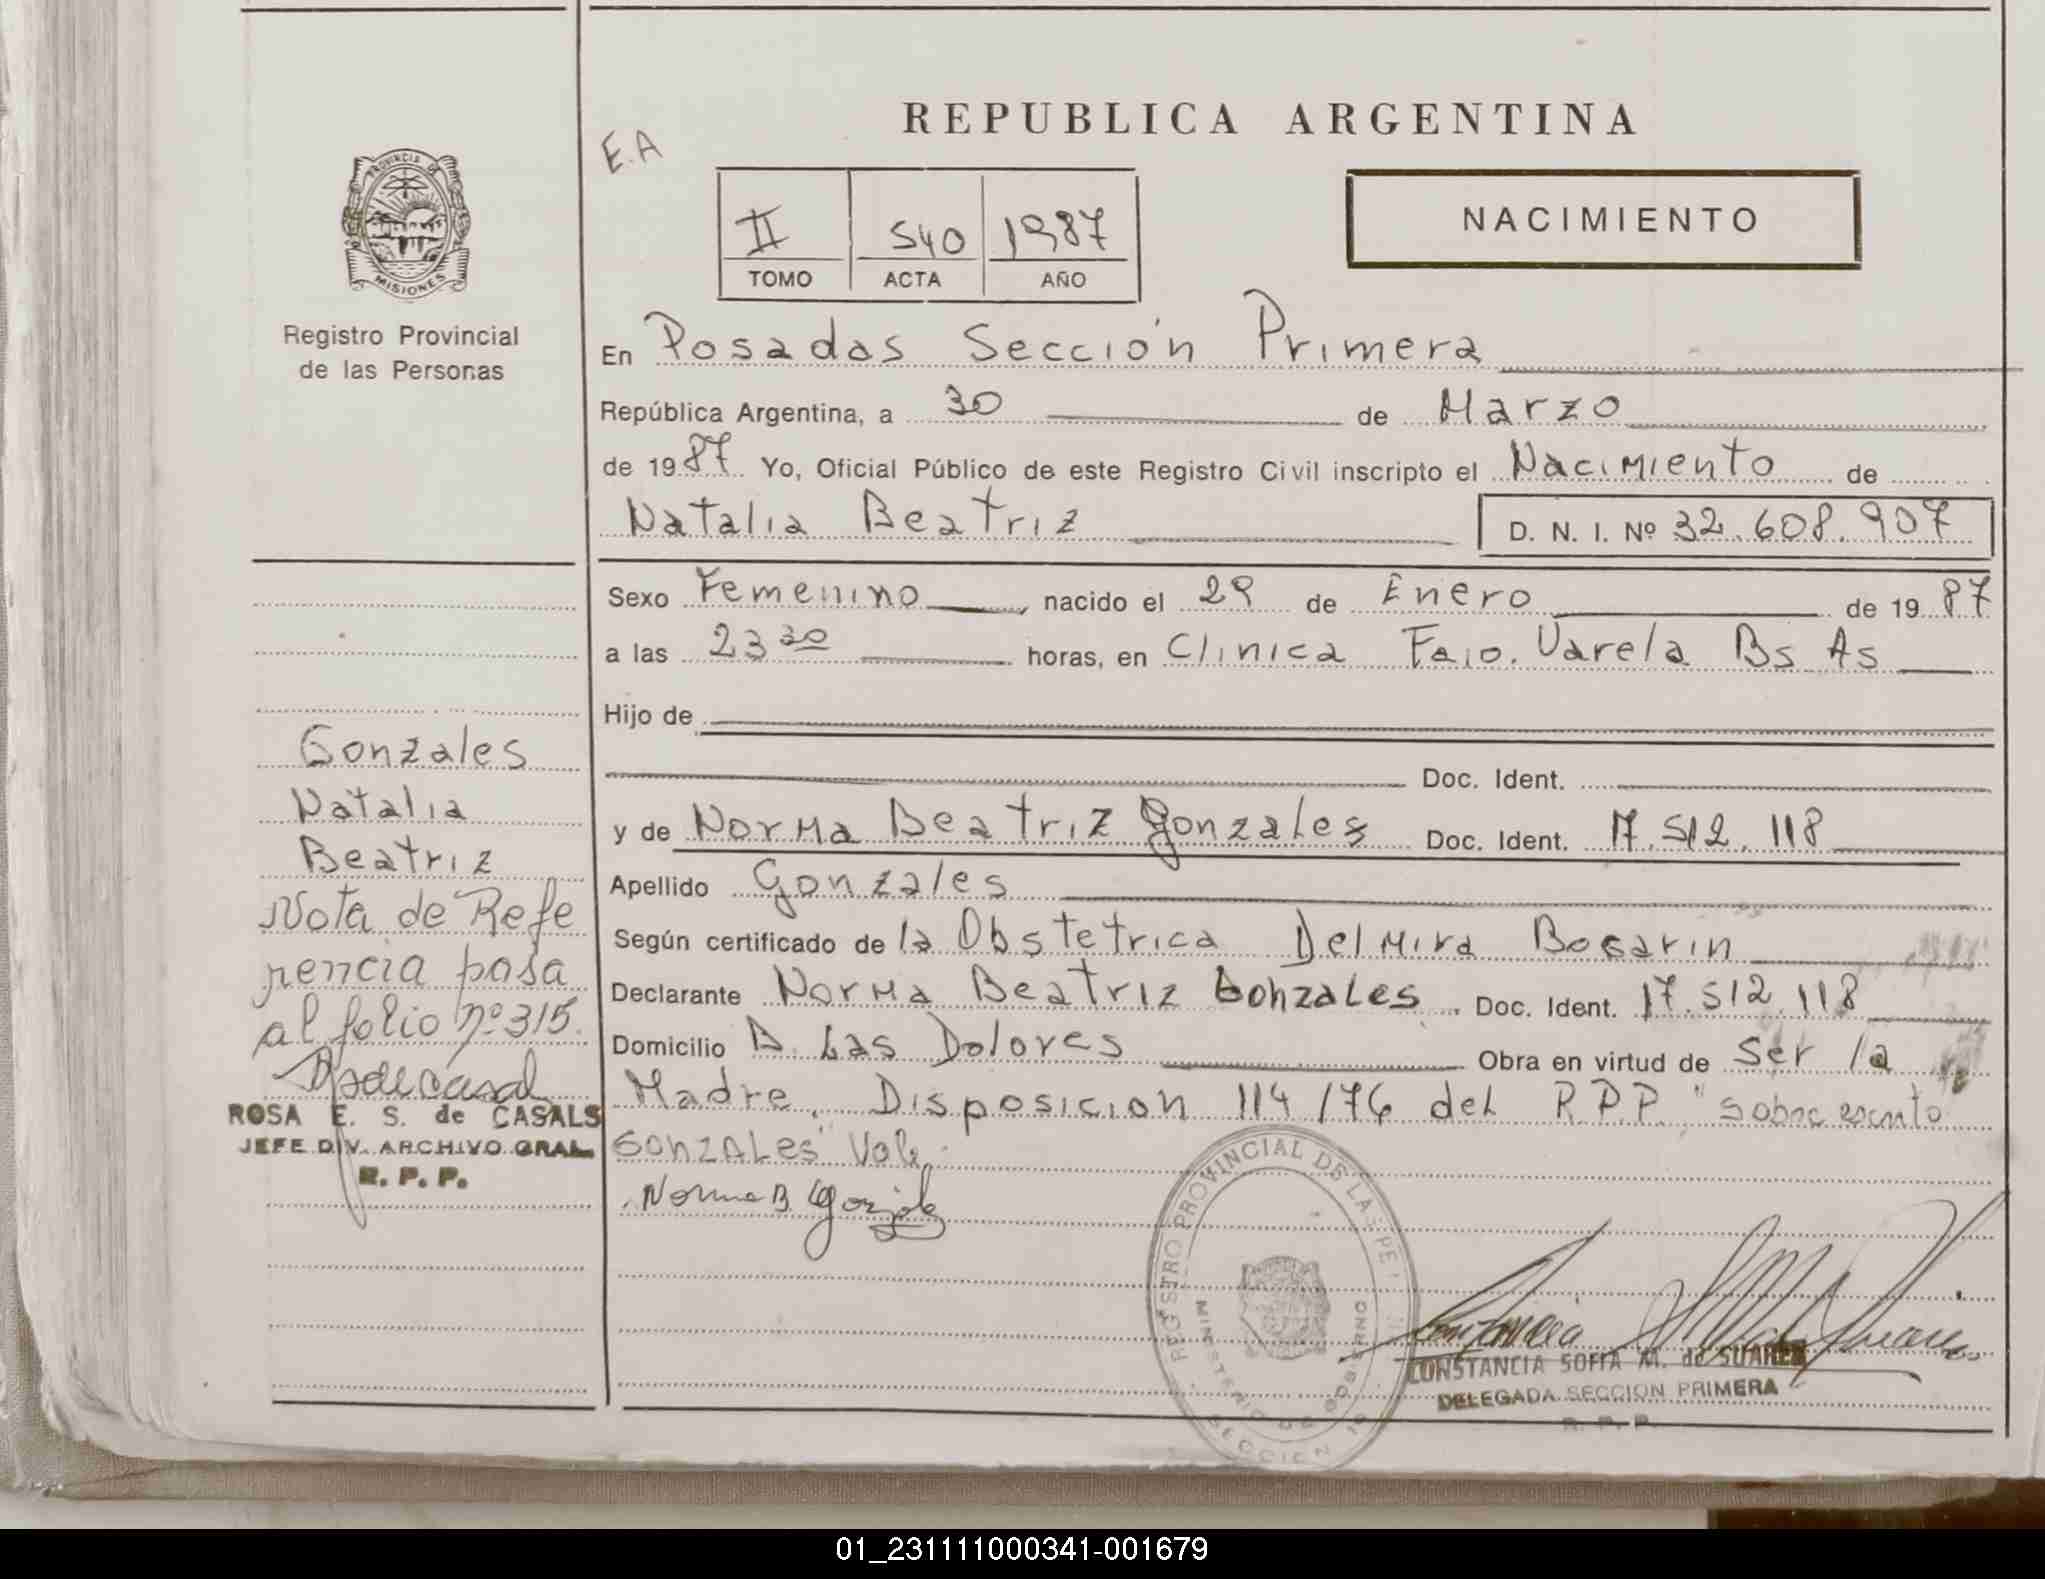 REPUBLICA ARGENTINA
E.A
NACIMIENTO
II 540 1987
TOMO ACTA AÑO
PROVINCIA DE
MISIONES
Registro Provincial
de las Personas
En Posadas Sección Primera
República Argentina, a 30 de Marzo
de 1987 Yo, Oficial Público de este Registro Civil inscripto el Nacimiento de
Natalia Beatriz D. N. I. Nº 32.608.907
Sexo Femenino, nacido el 29 de Enero de 1987
a las 23 30 horas, en Clinica Fcio. Varela Bs As
Hijo de
Doc. Ident.
y de Norma Beatriz Gonzales Doc. Ident. 17.512.118
Apellido Gonzales
Según certificado de la Obstetrica Delmira Bogarin
Declarante Norma Beatriz Gonzales. Doc. Ident. 17.512.118
Domicilio B. Las Dolores Obra en virtud de ser la
Madre. Disposicion 114/76 del R.P.P. "sobre escrito
GONZALES" Vale.
Norma B. Gonzales
Gonzales
Natalia
Beatriz
Nota de Refe
rencia pasa
al folio nº 315.
ROSA E. S. de CASALS
JEFE DIV. ARCHIVO GRAL
R. P. P.
REGISTRO PROVINCIAL DE LAS PE
MINISTERIO DE GOBIERNO
SECCION 1ª
CONSTANCIA SOFIA M. de SUAREZ
DELEGADA SECCION PRIMERA
R. P. P.
01_231111000341-001679